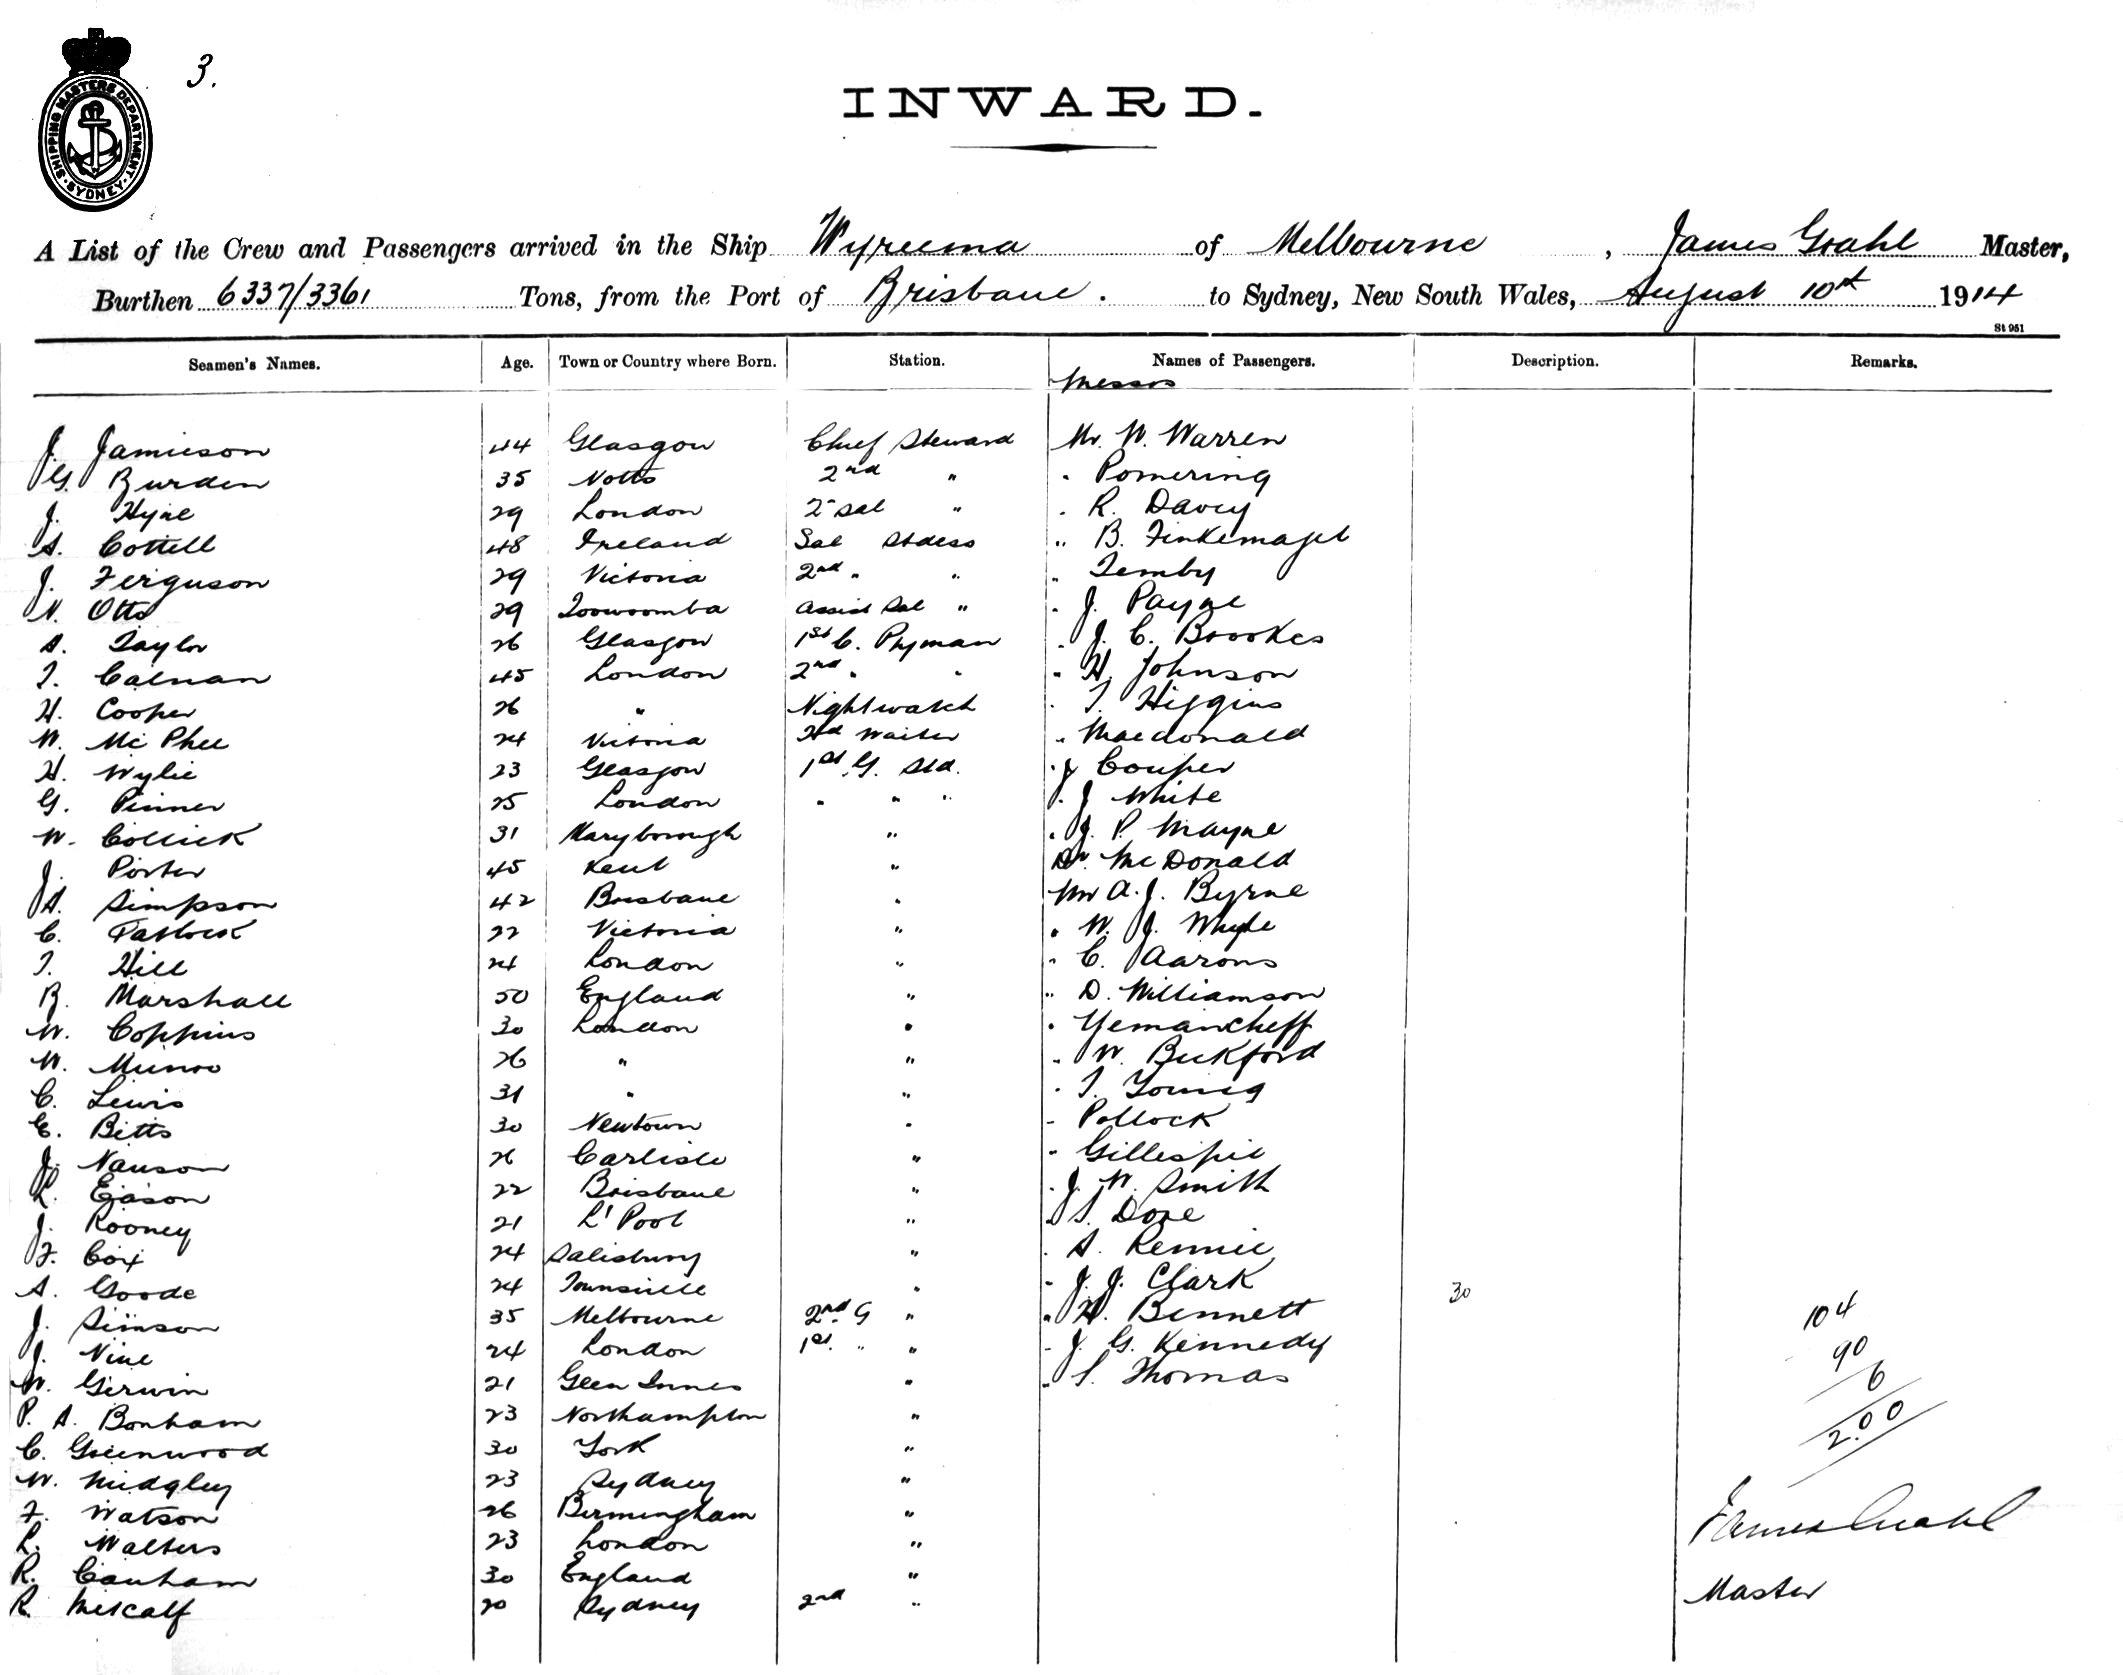 3.
SHIPPING MASTERS DEPARTMENT
SYDNEY
INWARD.
A List of the Crew and Passengers arrived in the Ship Wyreema of Melbourne, James Grahl Master,
Burthen 6337/3361 Tons, from the Port of Brisbane. to Sydney, New South Wales, August 10th 1914
St 951
Seamen's Names. Age. Town or Country where Born. Station. Names of Passengers. Description. Remarks.
Messrs
J. Jamieson 44 Glasgow Chief Steward Mr. W. Warren
G. Burden 35 Notts 2nd " " Pomering
J. Hyne 29 London 2 Sal " " R. Davey
A. Cottell 48 Ireland Sal Stdess " B. Finkemagel
J. Ferguson 29 Victoria 2nd " " " Temby
N. Otto 29 Toowoomba Assist Sal " " J. Payne
A. Taylor 26 Glasgow 1st C. Pyman " J. C. Brookes
T. Calnan 45 London 2nd " " " H. Johnson
H. Cooper 26 " Nightwatch " T. Higgins
W. McPhee 24 Victoria Hd Waiter " Macdonald
H. Wylie 23 Glasgow 1st G. Std. " J Couper
G. Pinner 25 London " " " " J White
W. Collick 31 Maryborough " " J. P. Mayne
J. Porter 45 Kent " Dr. McDonald
A. Simpson 42 Brisbane " Mr A. J. Byrne
C. Tatlock 22 Victoria " " W. J. Whyte
T. Hill 24 London " " C. Aarons
B. Marshall 50 England " " D. Williamson
W. Coppins 30 London " " Yemancheff
W. Munro 26 " " " W. Bickford
C. Lewis 31 " " " T. Young
E. Bitts 30 Newtown " " Pollock
J. Nanson 26 Carlisle " " Gillespie
L. Eason 22 Brisbane " " J. W. Smith
J. Rooney 21 L'Pool " " S. Dore
F. Cox 24 Salisbury " " A. Rennie
A. Goode 24 Townsville " " J. J. Clark 30
J. Simson 35 Melbourne 2nd G " " H. Bennett 104
J. Nine 24 London 1st " " " J. G. Kennedy 90
W. Girwin 21 Glen Innes " " S. Thomas 6
P. A. Bonham 23 Northampton " 200
C. Greenwood 30 York "
W. Midgley 23 Sydney "
F. Watson 26 Birmingham " James Grahl
L. Walters 23 London "
R. Canham 30 England " Master
R. Metcalf 20 Sydney 2nd "